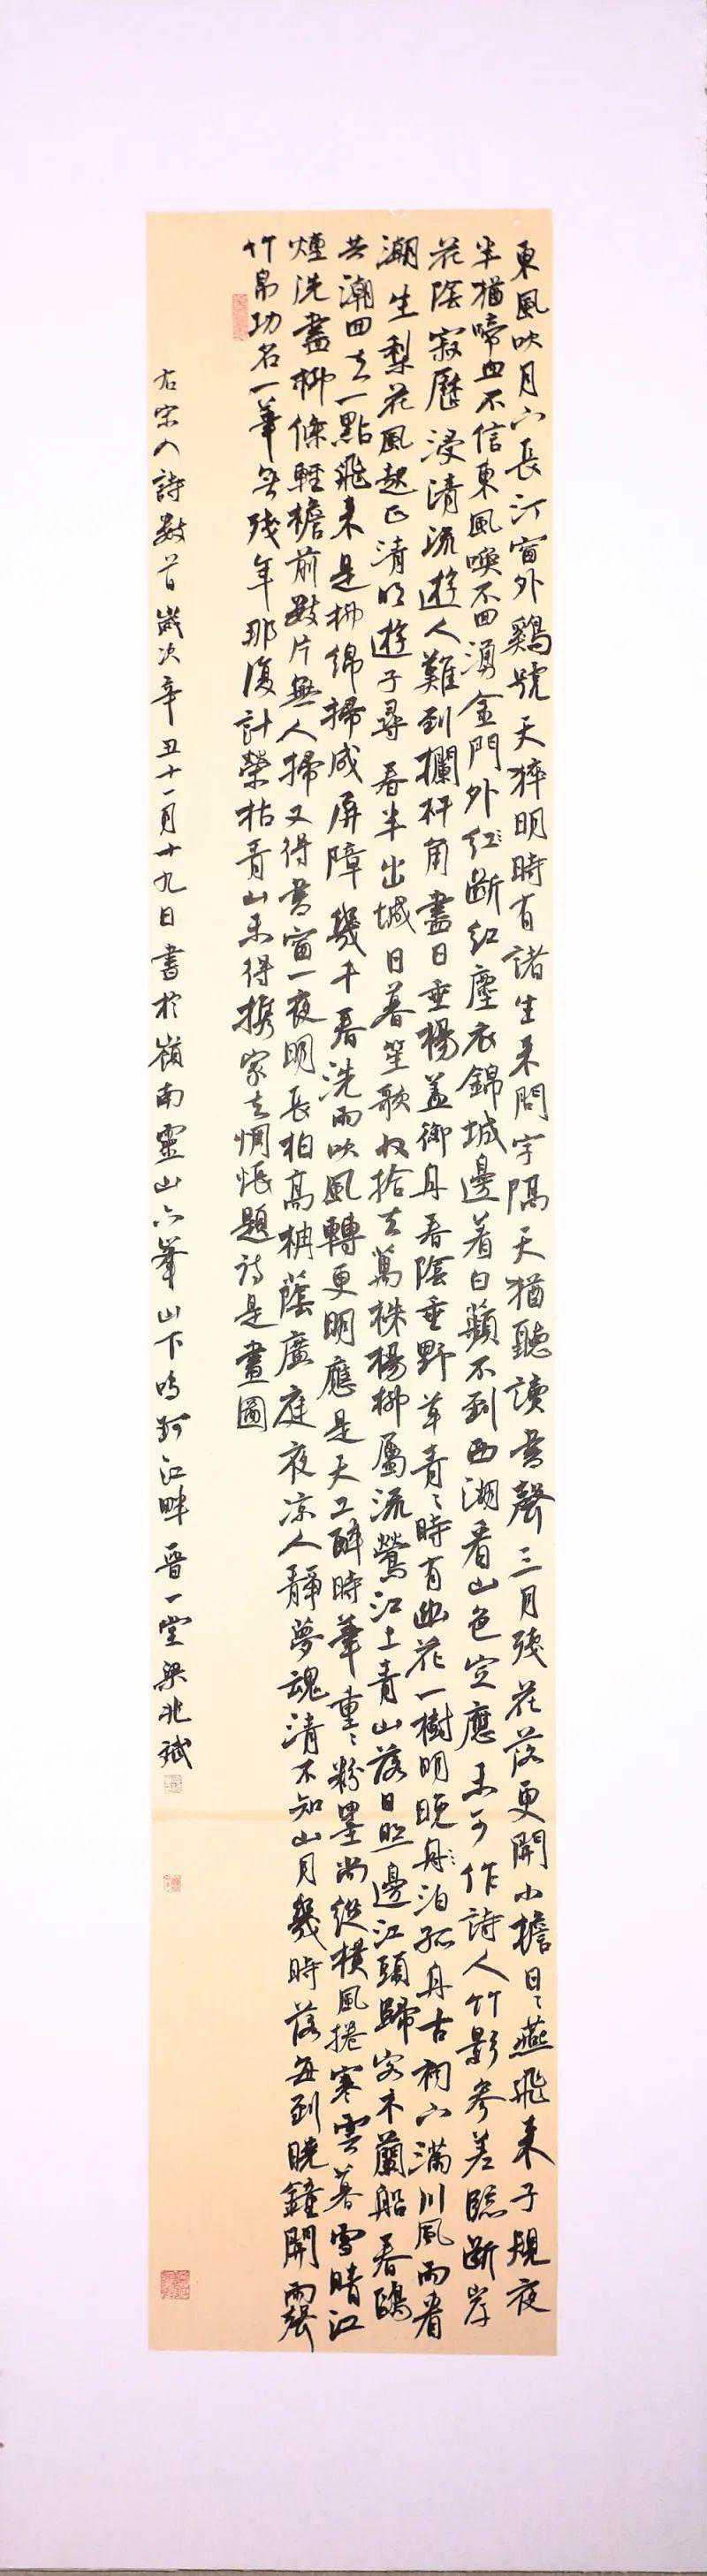 東風吹月六長汀窗外鷄號天猝明時有諸生來問字隔天猶聽讀書聲三月殘花落更開小檐日〻燕飛來子規夜
半猶啼血不信東風喚不回湧金門外斷紅塵衣錦城邊着白蘋不到西湖看山色定應未可作詩人竹影參差臨斷岸
花陰寂歷浸清流遊人難到攔杆角盡日垂楊盖御舟春陰垂野草青〻時有幽花一樹明晚泊孤舟古祠下滿川風雨看
潮生梨花風起正清明遊子尋春半出城日暮笙歌收拾去萬株楊柳屬流鶯江上青山落日邊江頭歸客木蘭船春鷗
共潮回去一點飛來是柳綿掃成屏障幾千春洗雨吹風轉更明應是天工醉時筆重〻粉墨尚縱横風捲寒雲暮雪晴江
煙洗盡柳條輕檐前數片無人掃又得書窗一夜明長柏高楠蔭廣庭夜凉人靜夢魂清不知山月幾時落每到曉鐘聞雨聲
竹帛功名一筆無殘年那復計榮枯青山未得携家去惆悵題詩是畫圖
右宋人詩數首歲次辛丑十一月十九日書於嶺南靈山六峯山下鳴珂江畔晋一堂梁兆斌